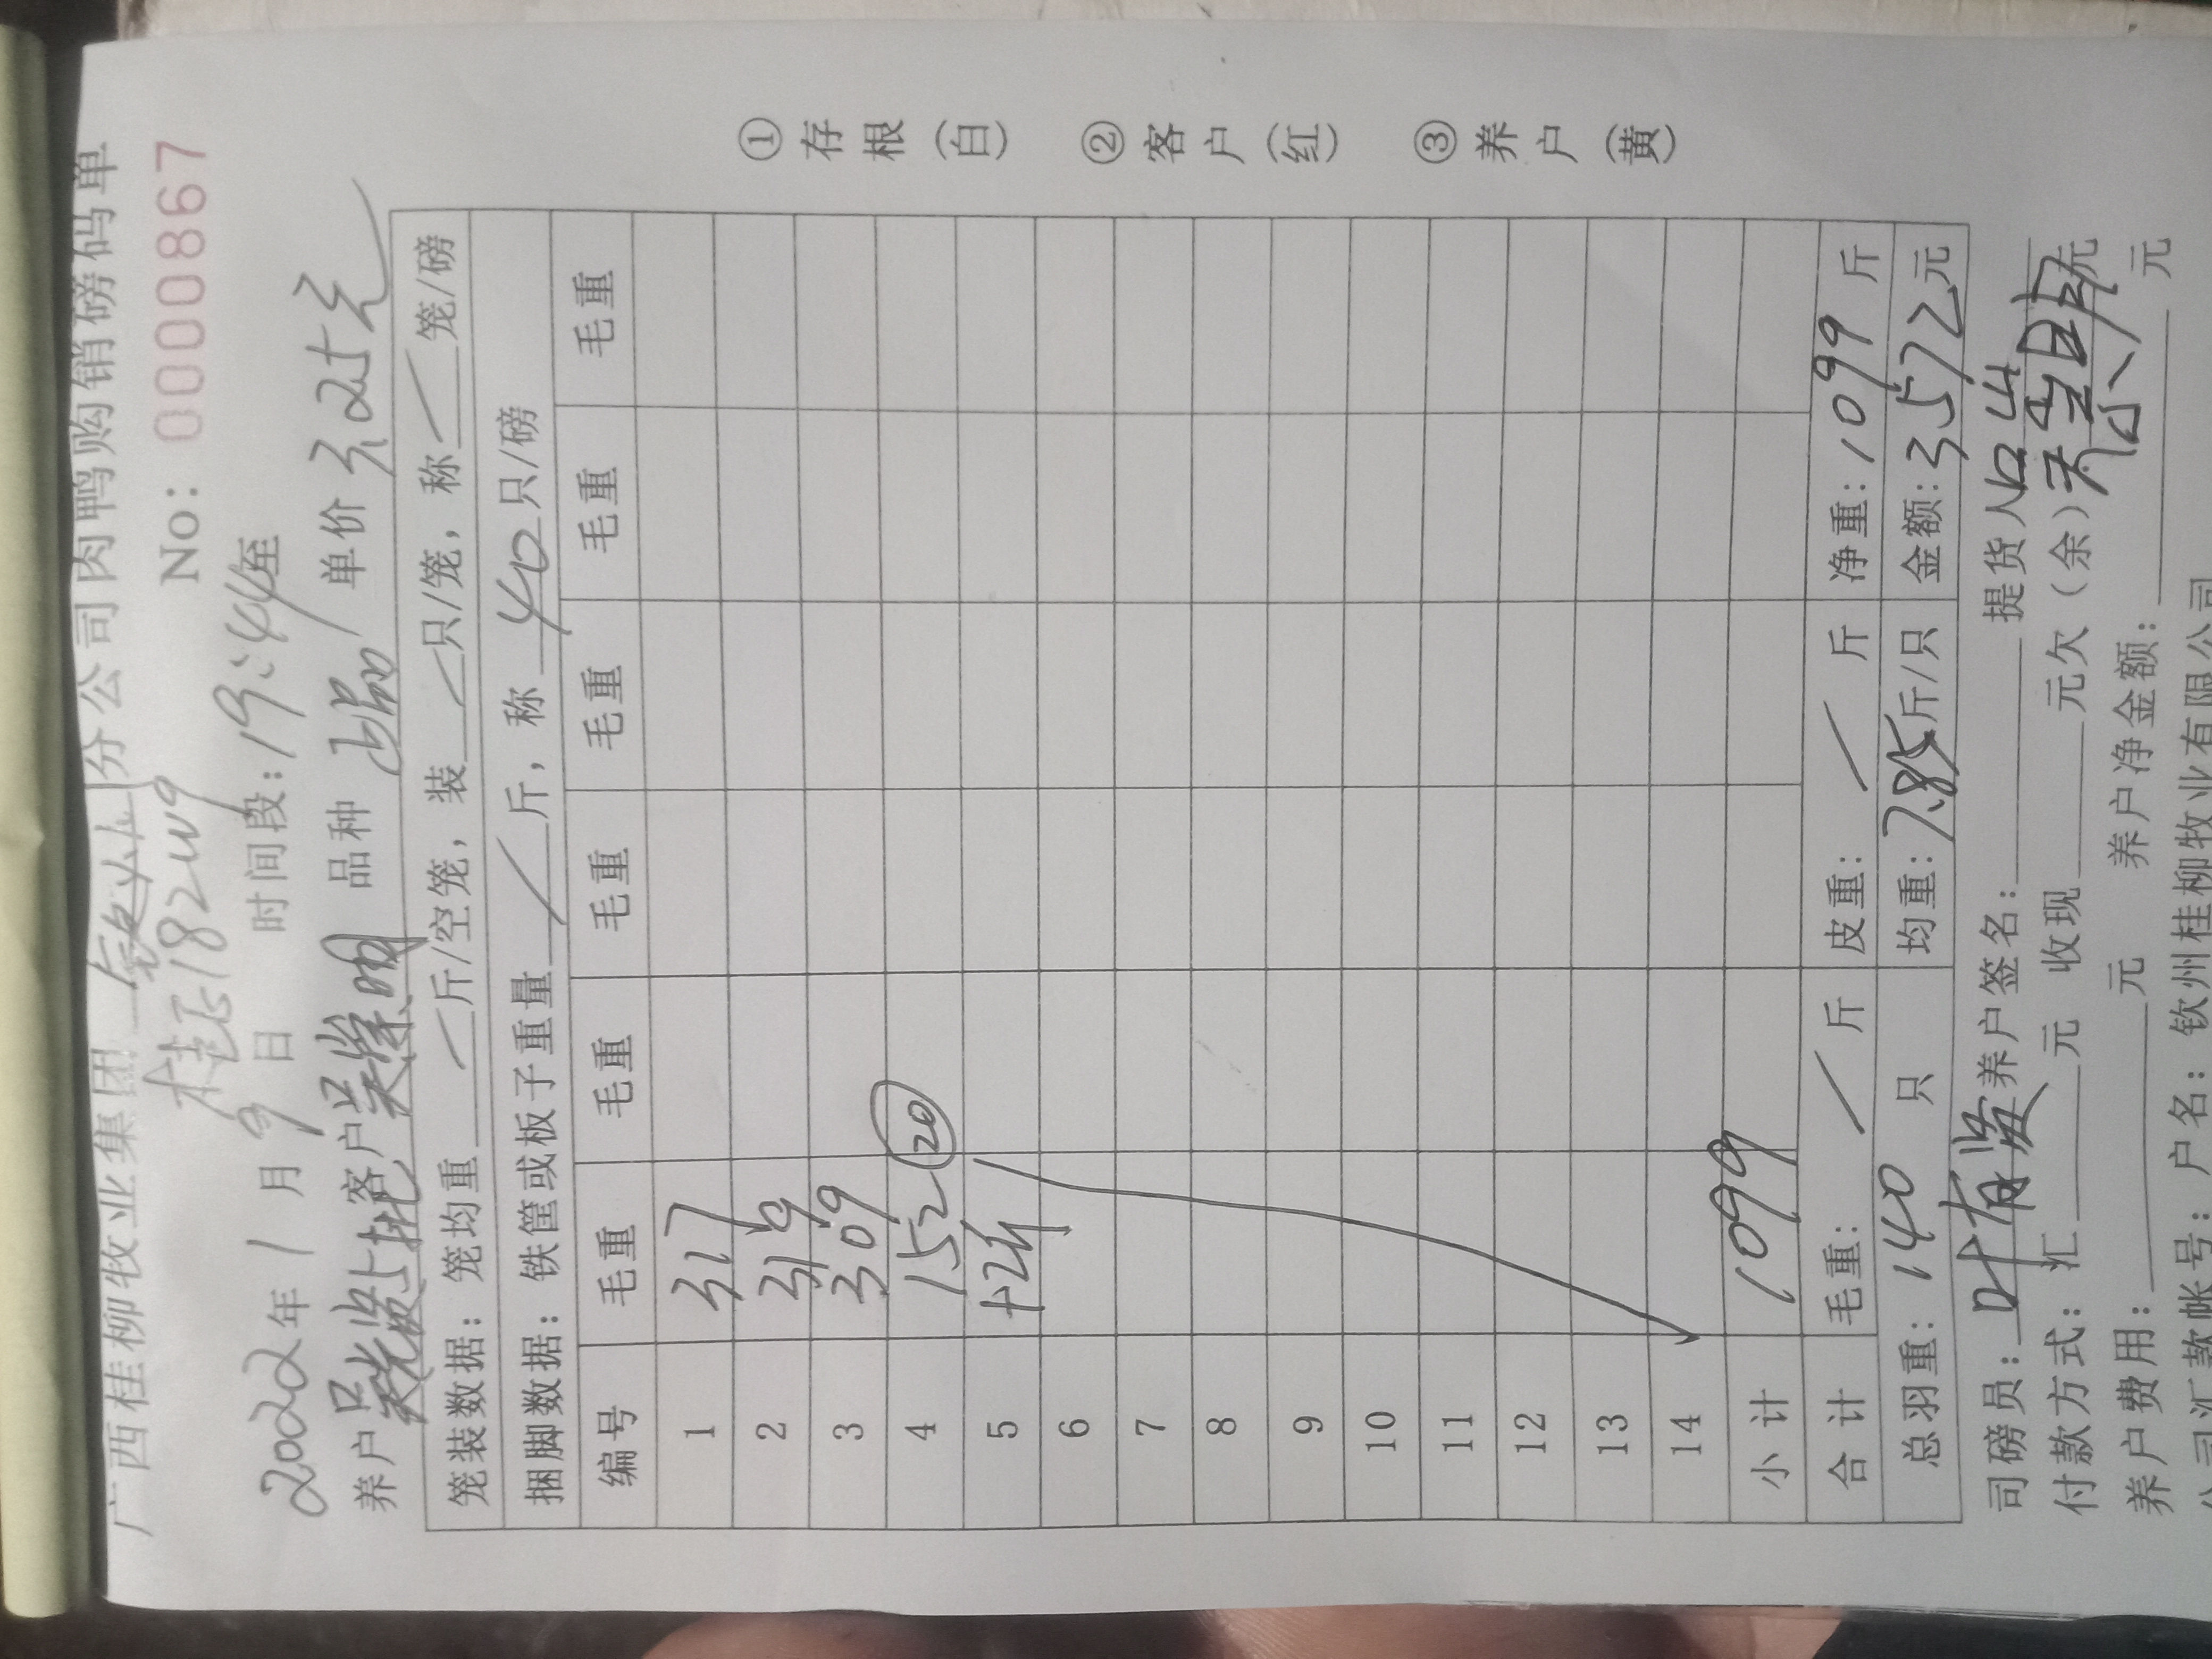 广西桂柳牧业集团 钦州 分公司肉鸭购销磅码单
No: 0000867
2022年1月9日 时间段:19:44至
养户 客户 吴举明 品种 出品 单价 3.25元
笼装数据: 笼均重 / 斤/空笼, 装 / 只/笼, 称 / 笼/磅
捆脚数据: 铁筐或板子重量 / 斤, 称 40 只/磅
编号 毛重 毛重 毛重 毛重 毛重 毛重
1 317
2 319
3 309
4 152 (20)
5 +2斤
6
7
8
9
10
11
12
13
14
小计 1099
合计 毛重: / 斤 皮重: / 斤 净重: 1099 斤
总羽重: 140 只 均重: 7.85 斤/只 金额: 3572元
司磅员: 叶有 养户签名: 提货人
付款方式: 汇 元 收现 元欠(余) 元
养户费用: 元 养户净金额: 元
公司汇款帐号: 户名: 钦州桂柳牧业有限公司
①存根(白) ②客户(红) ③养户(黄)